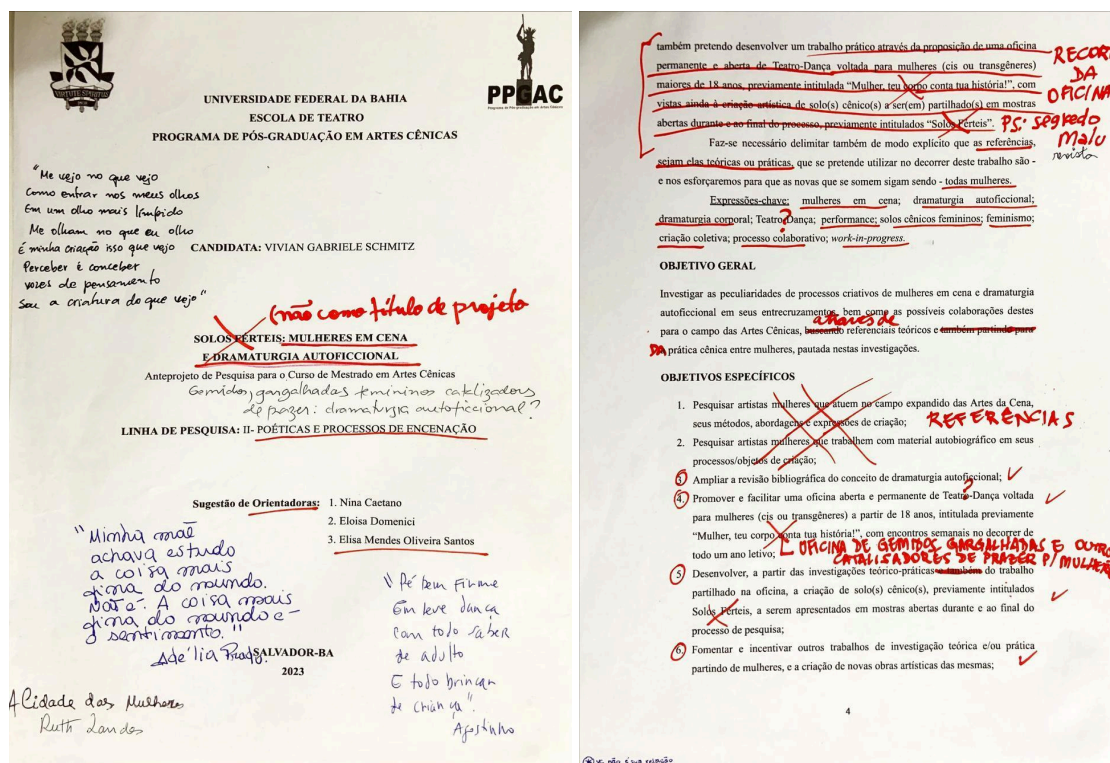 VIRTUTE SPIRITUS
PPGAC
Programa de Pós-Graduação em Artes Cênicas
UNIVERSIDADE FEDERAL DA BAHIA
ESCOLA DE TEATRO
PROGRAMA DE PÓS-GRADUAÇÃO EM ARTES CÊNICAS
"Me vejo no que vejo
Como entrar nos meus olhos
Em um olho mais límpido
Me olham no que eu olho
É minha criação isso que vejo
Perceber é conceber
vozes de pensamento
Sou a criatura do que vejo"
CANDIDATA: VIVIAN GABRIELE SCHMITZ
(não como título de projeto
SOLOS FÉRTEIS: MULHERES EM CENA
E DRAMATURGIA AUTOFICCIONAL
Anteprojeto de Pesquisa para o Curso de Mestrado em Artes Cênicas
Gemidos, gargalhadas femininos catalizadores
de prazer: dramaturgia autoficcional?
LINHA DE PESQUISA: II- POÉTICAS E PROCESSOS DE ENCENAÇÃO
Sugestão de Orientadoras: 1. Nina Caetano
2. Eloisa Domenici
3. Elisa Mendes Oliveira Santos
"Minha mãe
achava estudo
a coisa mais
fina do mundo.
Não é. A coisa mais
fina do mundo é
o sentimento."
Adélia Prado.
"Pé bem firme
Em leve dança
Com todo saber
de adulto
E todo brincar
de criança".
Agostinho
SALVADOR-BA
2023
A Cidade das Mulheres
Ruth Landes
também pretendo desenvolver um trabalho prático através da proposição de uma oficina
permanente e aberta de Teatro-Dança voltada para mulheres (cis ou transgêneres)
maiores de 18 anos, previamente intitulada "Mulher, teu corpo conta tua história!", com
vistas ainda à criação artística de solo(s) cênico(s) a ser(em) partilhado(s) em mostras
abertas durante e ao final do processo, previamente intitulados "Solos Férteis".
RECOR
DA
OFICINA
PS: segredo
Malu
revista
Faz-se necessário delimitar também de modo explícito que as referências,
sejam elas teóricas ou práticas, que se pretende utilizar no decorrer deste trabalho são -
e nos esforçaremos para que as novas que se somem sigam sendo - todas mulheres.
Expressões-chave: mulheres em cena; dramaturgia autoficcional;
dramaturgia corporal; Teatro-Dança; performance; solos cênicos femininos; feminismo;
?
criação coletiva; processo colaborativo; work-in-progress.
OBJETIVO GERAL
Investigar as peculiaridades de processos criativos de mulheres em cena e dramaturgia
autoficcional em seus entrecruzamentos, bem como as possíveis colaborações destes
através de
para o campo das Artes Cênicas, buscando referenciais teóricos e também partindo para
DA prática cênica entre mulheres, pautada nestas investigações.
OBJETIVOS ESPECÍFICOS
1. Pesquisar artistas mulheres que atuem no campo expandido das Artes da Cena,
seus métodos, abordagens e expressões de criação;
REFERÊNCIAS
2. Pesquisar artistas mulheres que trabalhem com material autobiográfico em seus
processos/objetos de criação;
3. Ampliar a revisão bibliográfica do conceito de dramaturgia autoficcional;
?
4. Promover e facilitar uma oficina aberta e permanente de Teatro-Dança voltada
para mulheres (cis ou transgêneres) a partir de 18 anos, intitulada previamente
"Mulher, teu corpo conta tua história!", com encontros semanais no decorrer de
todo um ano letivo;
OFICINA DE GEMIDOS GARGALHADAS E OUTRO
CATALISADORES DE PRAZER P/ MULHER
5. Desenvolver, a partir das investigações teórico-práticas e também do trabalho
partilhado na oficina, a criação de solo(s) cênico(s), previamente intitulados
Solos Férteis, a serem apresentados em mostras abertas durante e ao final do
processo de pesquisa;
6. Fomentar e incentivar outros trabalhos de investigação teórica e/ou prática
partindo de mulheres, e a criação de novas obras artísticas das mesmas;
4
não é sua relação